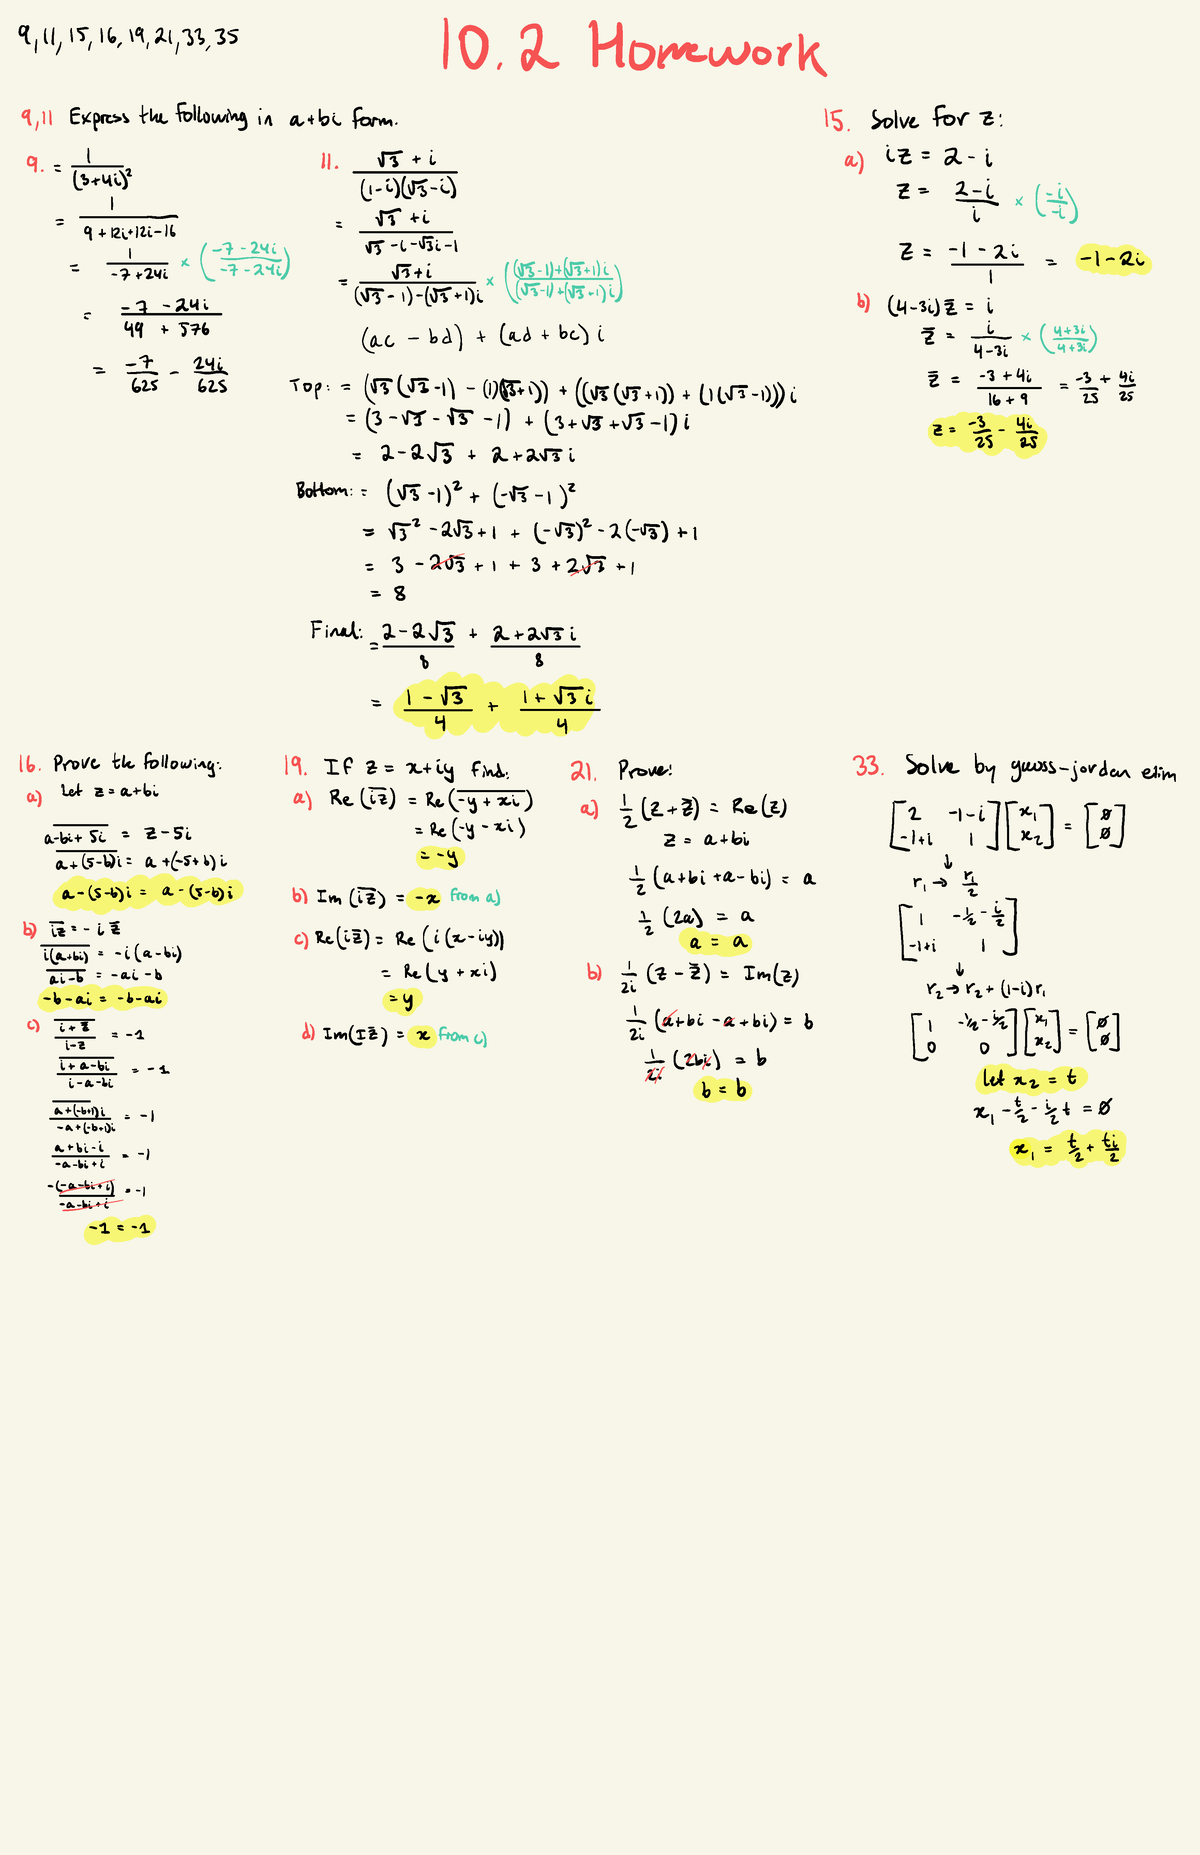 9, 11, 15, 16, 19, 21, 33, 35
10.2 Homework
9, 11 Express the following in a+bi form.
9. = 1/(3+4i)²
= 1/(9+12i+12i-16)
= 1/(-7+24i) × ((-7-24i)/(-7-24i))
= (-7-24i)/(49+576)
= -7/625 - 24i/625
11. (√3+i)/((1-i)(√3-i))
= (√3+i)/(√3-i-√3i-1)
= (√3+i)/((√3-1)-(√3+1)i) × (((√3-1)+(√3+1)i)/((√3-1)+(√3+1)i))
(ac - bd) + (ad + bc) i
Top: = (√3(√3-1) - (1)(√3+1)) + ((√3(√3+1)) + (1(√3-1))) i
= (3-√3-√3-1) + (3+√3+√3-1) i
= 2-2√3 + 2+2√3 i
Bottom: = (√3-1)² + (-√3-1)²
= √3² - 2√3+1 + (-√3)² - 2(-√3) +1
= 3 - 2√3 + 1 + 3 + 2√3 + 1
= 8
Final: = (2-2√3)/8 + (2+2√3 i)/8
= (1-√3)/4 + (1+√3 i)/4
15. Solve for z:
a) iz = 2-i
z = (2-i)/i × (-i/-i)
z = (-1-2i)/1 = -1-2i
b) (4-3i)z̅ = i
z̅ = i/(4-3i) × ((4+3i)/(4+3i))
z̅ = (-3+4i)/(16+9) = -3/25 + 4i/25
z = -3/25 - 4i/25
16. Prove the following:
a) Let z = a+bi
\overline{a-bi+5i} = z-5i
\overline{a+(5-b)i} = a+(-5+b)i
a-(5-b)i = a-(5-b)i
b) \overline{iz} = -i z̅
\overline{i(a+bi)} = -i(a-bi)
\overline{ai-b} = -ai-b
-b-ai = -b-ai
c) \overline{i+z̅}/(i-z) = -1
\overline{i+a-bi}/(i-a-bi) = -1
\overline{a+(-b+1)i}/(-a+(-b+1)i) = -1
(a+bi-i)/(-a-bi+i) = -1
-(-a-bi+i)/(-a-bi+i) = -1
-1 = -1
19. If z = x+iy find:
a) Re(\overline{iz}) = Re(\overline{-y+xi})
= Re(-y-xi)
= -y
b) Im(\overline{iz}) = -x from a)
c) Re(iz̅) = Re(i(x-iy))
= Re(y+xi)
= y
d) Im(Iz̅) = x from c)
21. Prove:
a) 1/2 (z+z̅) = Re(z)
z = a+bi
1/2 (a+bi+a-bi) = a
1/2 (2a) = a
a = a
b) 1/2i (z-z̅) = Im(z)
1/2i (a+bi-a+bi) = b
1/2i (2bi) = b
b = b
33. Solve by gauss-jordan elim
[2 -1-i; -1+i 1] [x₁; x₂] = [0; 0]
↓
r₁ → r₁/2
[1 -1/2-i/2; -1+i 1]
↓
r₂ → r₂ + (1-i)r₁
[1 -1/2-i/2; 0 0] [x₁; x₂] = [0; 0]
let x₂ = t
x₁ - t/2 - i/2 t = 0
x₁ = t/2 + ti/2